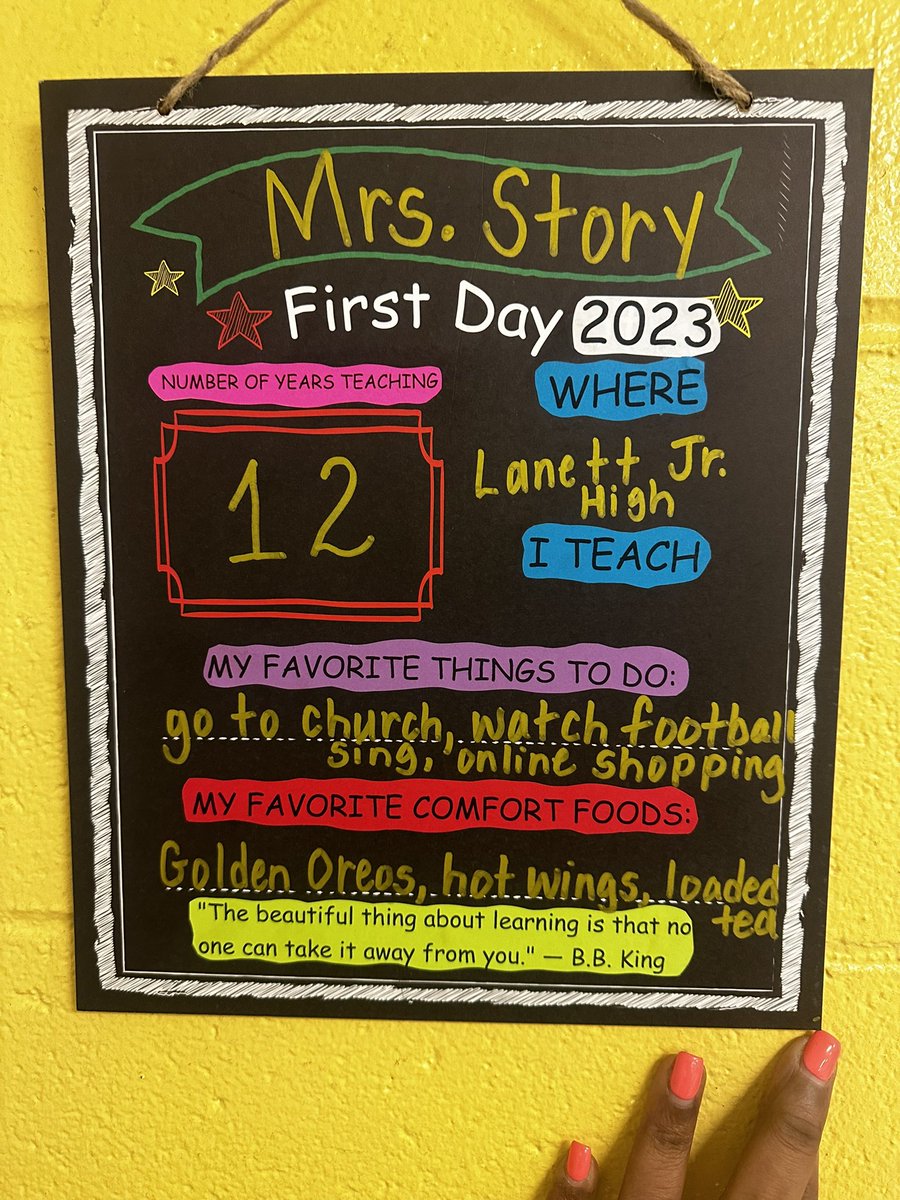 Mrs. Story
First Day 2023
NUMBER OF YEARS TEACHING
12
WHERE
Lanett Jr.
High
I TEACH
MY FAVORITE THINGS TO DO:
go to church, watch football
sing, online shopping
MY FAVORITE COMFORT FOODS:
Golden Oreos, hot wings, loaded
tea
"The beautiful thing about learning is that no
one can take it away from you." — B.B. King